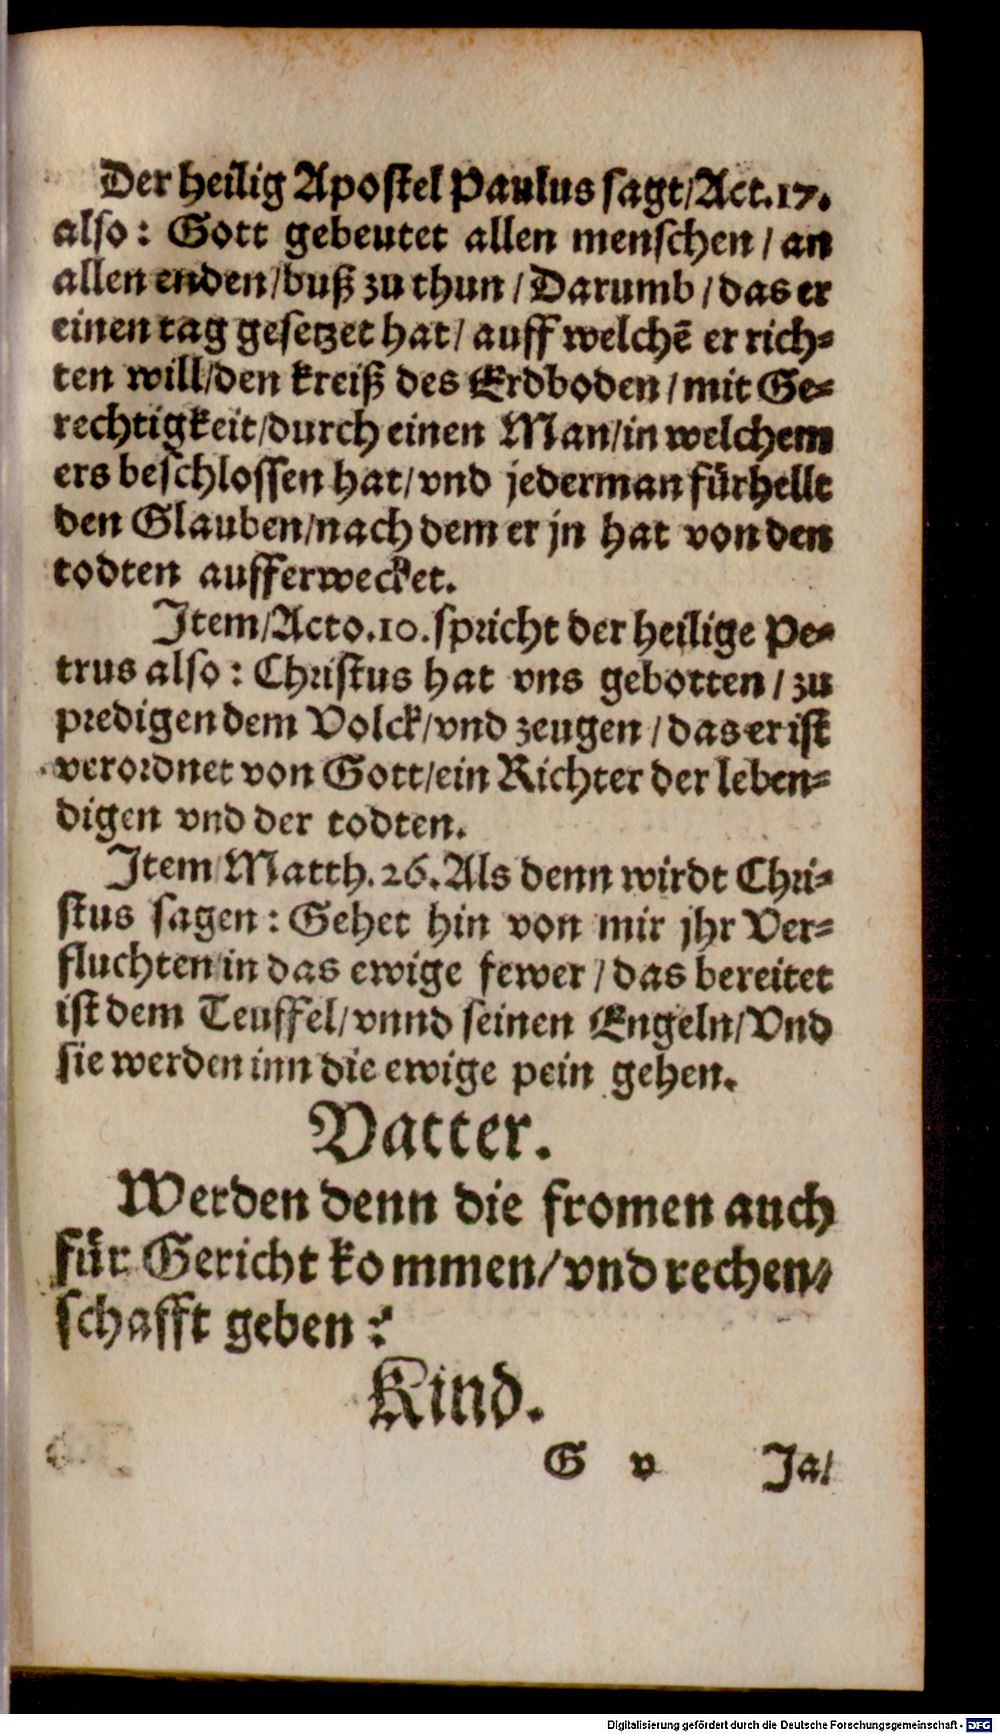 Der heilig Apostel Paulus sagt/Act.17.
also: Gott gebeutet allen menschen/ an
allen enden/buß zu thun/Darumb/das er
einen tag gesetzet hat/ auff welchē er rich-
ten will/den kreiß des Erdboden/mit Ge-
rechtigkeit/durch einen Man/in welchem
ers beschlossen hat/vnd jederman fürhellt
den Glauben/nach dem er jn hat von den
todten aufferwecket.
Item/Acto.10.spricht der heilige Pe-
trus also: Christus hat vns gebotten/ zu
predigen dem Volck/vnd zeugen/das er ist
verordnet von Gott/ein Richter der leben-
digen vnd der todten.
Item Matth.26.Als denn wirdt Chri-
stus sagen: Gehet hin von mir jhr Ver-
fluchten in das ewige fewer/das bereitet
ist dem Teuffel/vnnd seinen Engeln/Vnd
sie werden inn die ewige pein gehen.
Vatter.
Werden denn die fromen auch
für Gericht kommen/vnd rechen-
schafft geben?
Kind.
G v Ja/
Digitalisierung gefördert durch die Deutsche Forschungsgemeinschaft - DFG